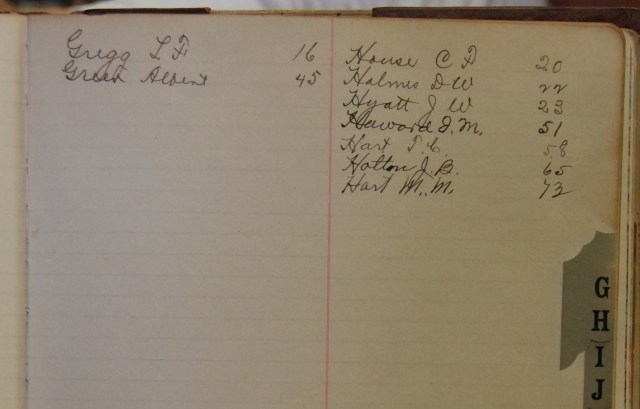 Gregg L F 16
Green Albert 45
House C F 20
Holmes D W 22
Hyatt J W 23
Howard J. M. 51
Hart F. C. 58
Hotton J. B. 65
Hart M. M. 72
G
H
I
J